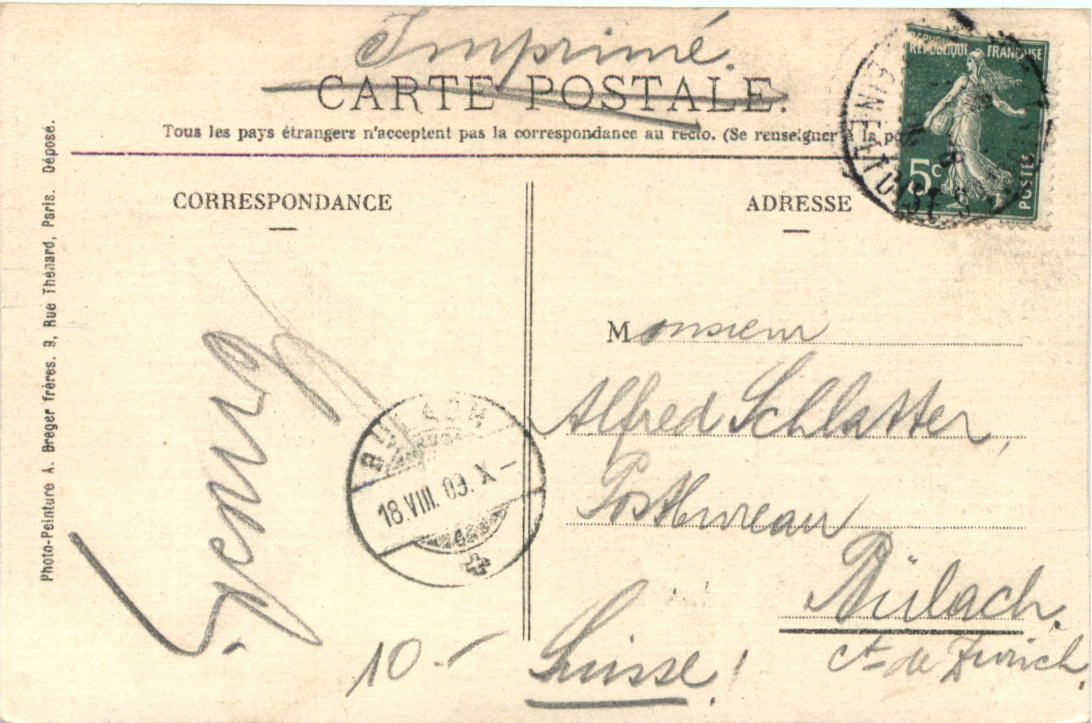 Imprimé.
CARTE POSTALE.
Tous les pays étrangers n'acceptent pas la correspondance au recto. (Se renseigner à la po
RÉPUBLIQUE FRANÇAISE
5c
POSTES
CORRESPONDANCE
ADRESSE
Photo-Peinture A. Breger frères. 9, Rue Thénard, Paris. Déposé.
Monsieur
Alfred Schlatter,
Postbureau
Bülach.
Ct de Zürich.
Suisse!
BÜLACH
18.VIII.09.X–
10.-